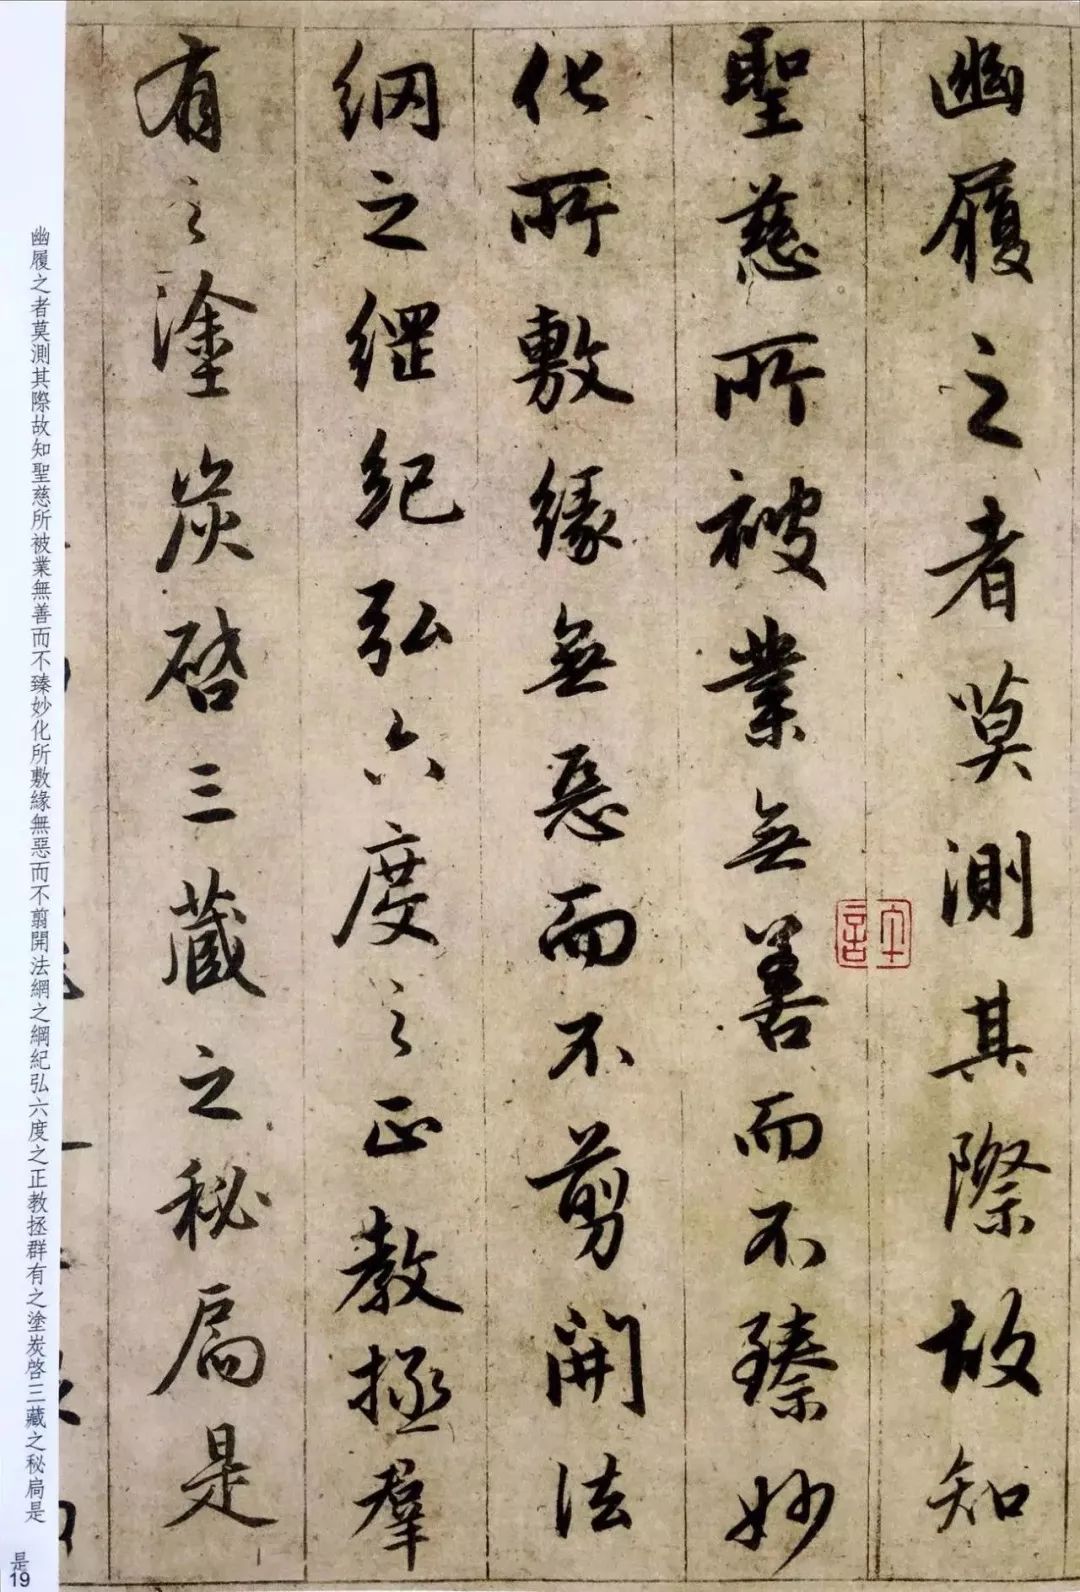 幽履之者莫測其際故知
聖慈所被業無善而不臻妙
化所敷緣無惡而不剪開法
網之綱紀弘六度之正教拯群
有之塗炭啓三藏之秘扃是
幽履之者莫測其際故知聖慈所被業無善而不臻妙化所敷緣無惡而不翦開法網之綱紀弘六度之正教拯群有之塗炭啓三藏之秘扃是
是
19